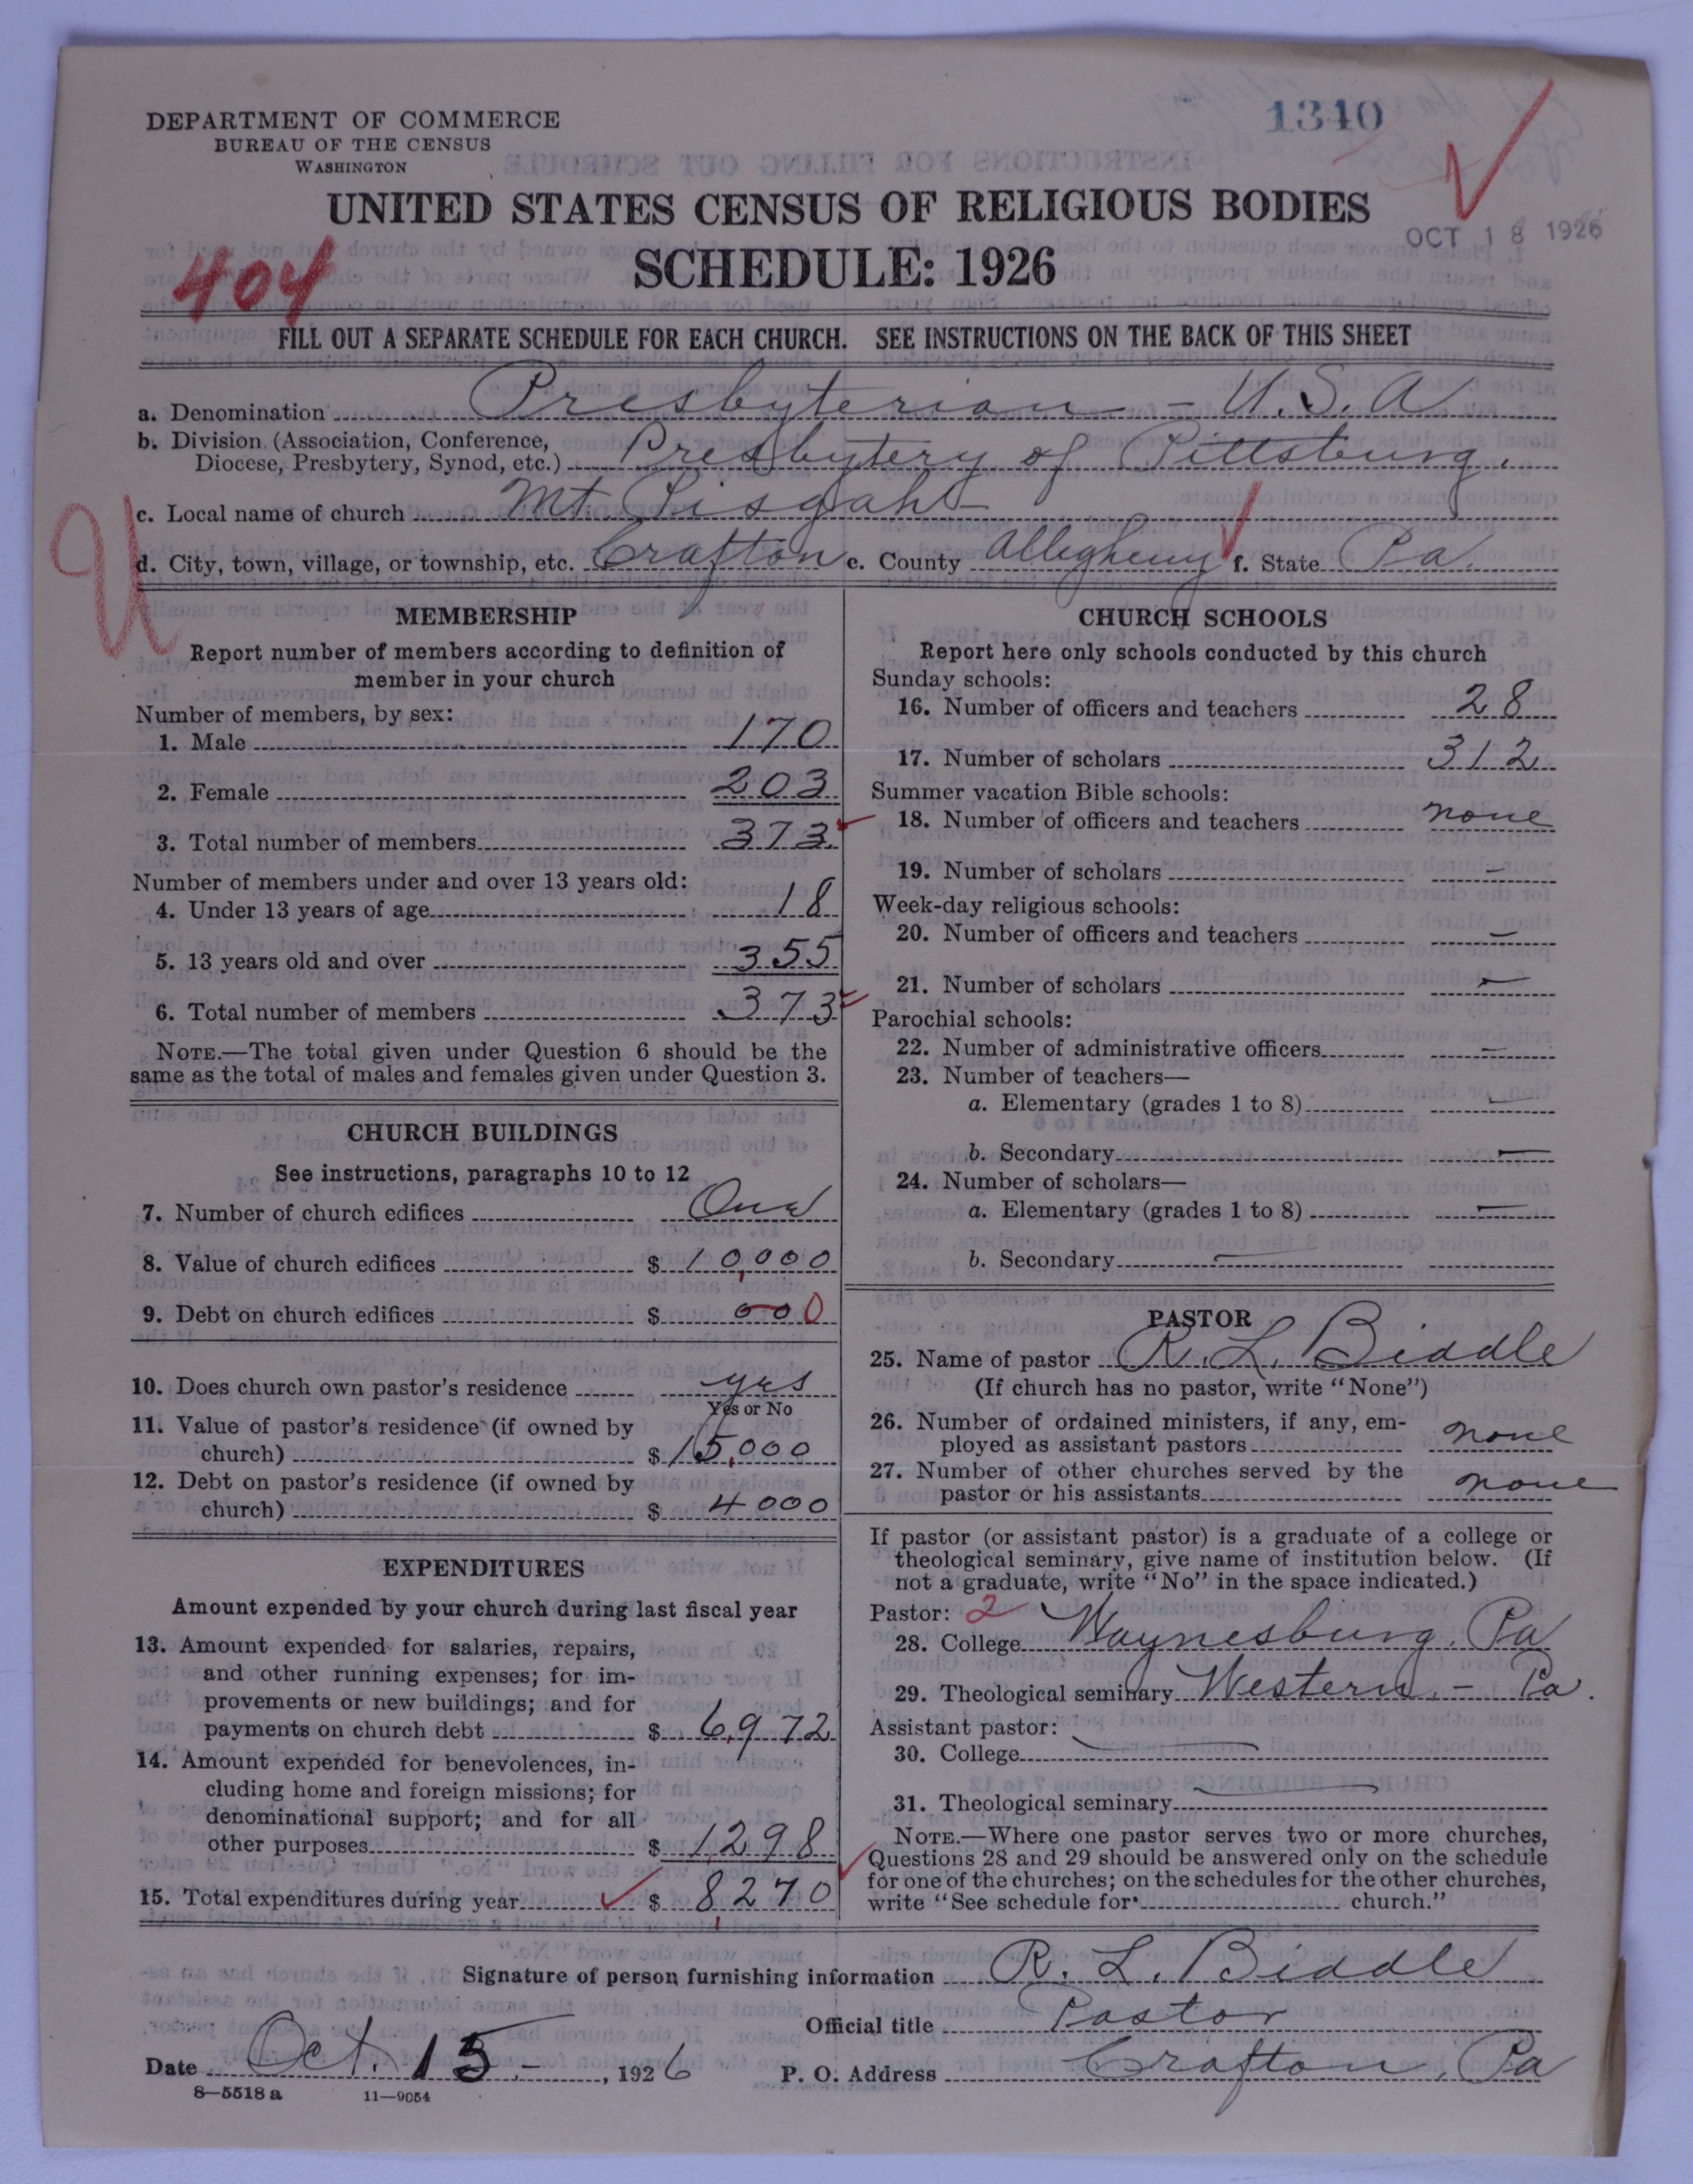 1340
DEPARTMENT OF COMMERCE
BUREAU OF THE CENSUS
WASHINGTON
UNITED STATES CENSUS OF RELIGIOUS BODIES
OCT 18 1926
SCHEDULE: 1926
404
FILL OUT A SEPARATE SCHEDULE FOR EACH CHURCH. SEE INSTRUCTIONS ON THE BACK OF THIS SHEET
a. Denomination Presbyterian - U.S.A
b. Division (Association, Conference,
Diocese, Presbytery, Synod, etc.) Presbytery of Pittsburg.
c. Local name of church Mt. Pisgah
d. City, town, village, or township, etc. Crafton e. County Allegheny f. State Pa.
MEMBERSHIP
Report number of members according to definition of
member in your church
Number of members, by sex:
1. Male 170
2. Female 203
3. Total number of members 373
Number of members under and over 13 years old:
4. Under 13 years of age 18
5. 13 years old and over 355
6. Total number of members 373
NOTE.—The total given under Question 6 should be the
same as the total of males and females given under Question 3.
CHURCH BUILDINGS
See instructions, paragraphs 10 to 12
7. Number of church edifices One
8. Value of church edifices $ 10,000
9. Debt on church edifices $ 000
10. Does church own pastor's residence yes
Yes or No
11. Value of pastor's residence (if owned by
church) $ 15,000
12. Debt on pastor's residence (if owned by
church) $ 4000
EXPENDITURES
Amount expended by your church during last fiscal year
13. Amount expended for salaries, repairs,
and other running expenses; for im-
provements or new buildings; and for
payments on church debt $ 6,972
14. Amount expended for benevolences, in-
cluding home and foreign missions; for
denominational support; and for all
other purposes $ 1,298
15. Total expenditures during year $ 8,270
CHURCH SCHOOLS
Report here only schools conducted by this church
Sunday schools:
16. Number of officers and teachers 28
17. Number of scholars 312
Summer vacation Bible schools:
18. Number of officers and teachers none
19. Number of scholars -
Week-day religious schools:
20. Number of officers and teachers -
21. Number of scholars -
Parochial schools:
22. Number of administrative officers -
23. Number of teachers—
a. Elementary (grades 1 to 8) -
b. Secondary -
24. Number of scholars—
a. Elementary (grades 1 to 8) -
b. Secondary -
PASTOR
25. Name of pastor R. L. Biddle
(If church has no pastor, write "None")
26. Number of ordained ministers, if any, em-
ployed as assistant pastors none
27. Number of other churches served by the
pastor or his assistants none
If pastor (or assistant pastor) is a graduate of a college or
theological seminary, give name of institution below. (If
not a graduate, write "No" in the space indicated.)
Pastor: 2
28. College Waynesburg, Pa
29. Theological seminary Western - Pa.
Assistant pastor:
30. College -
31. Theological seminary -
NOTE.—Where one pastor serves two or more churches,
Questions 28 and 29 should be answered only on the schedule
for one of the churches; on the schedules for the other churches,
write "See schedule for church."
Signature of person furnishing information R. L. Biddle
Official title Pastor
Date Oct. 15 -, 1926 P. O. Address Crafton, Pa
8—5518 a 11—9054